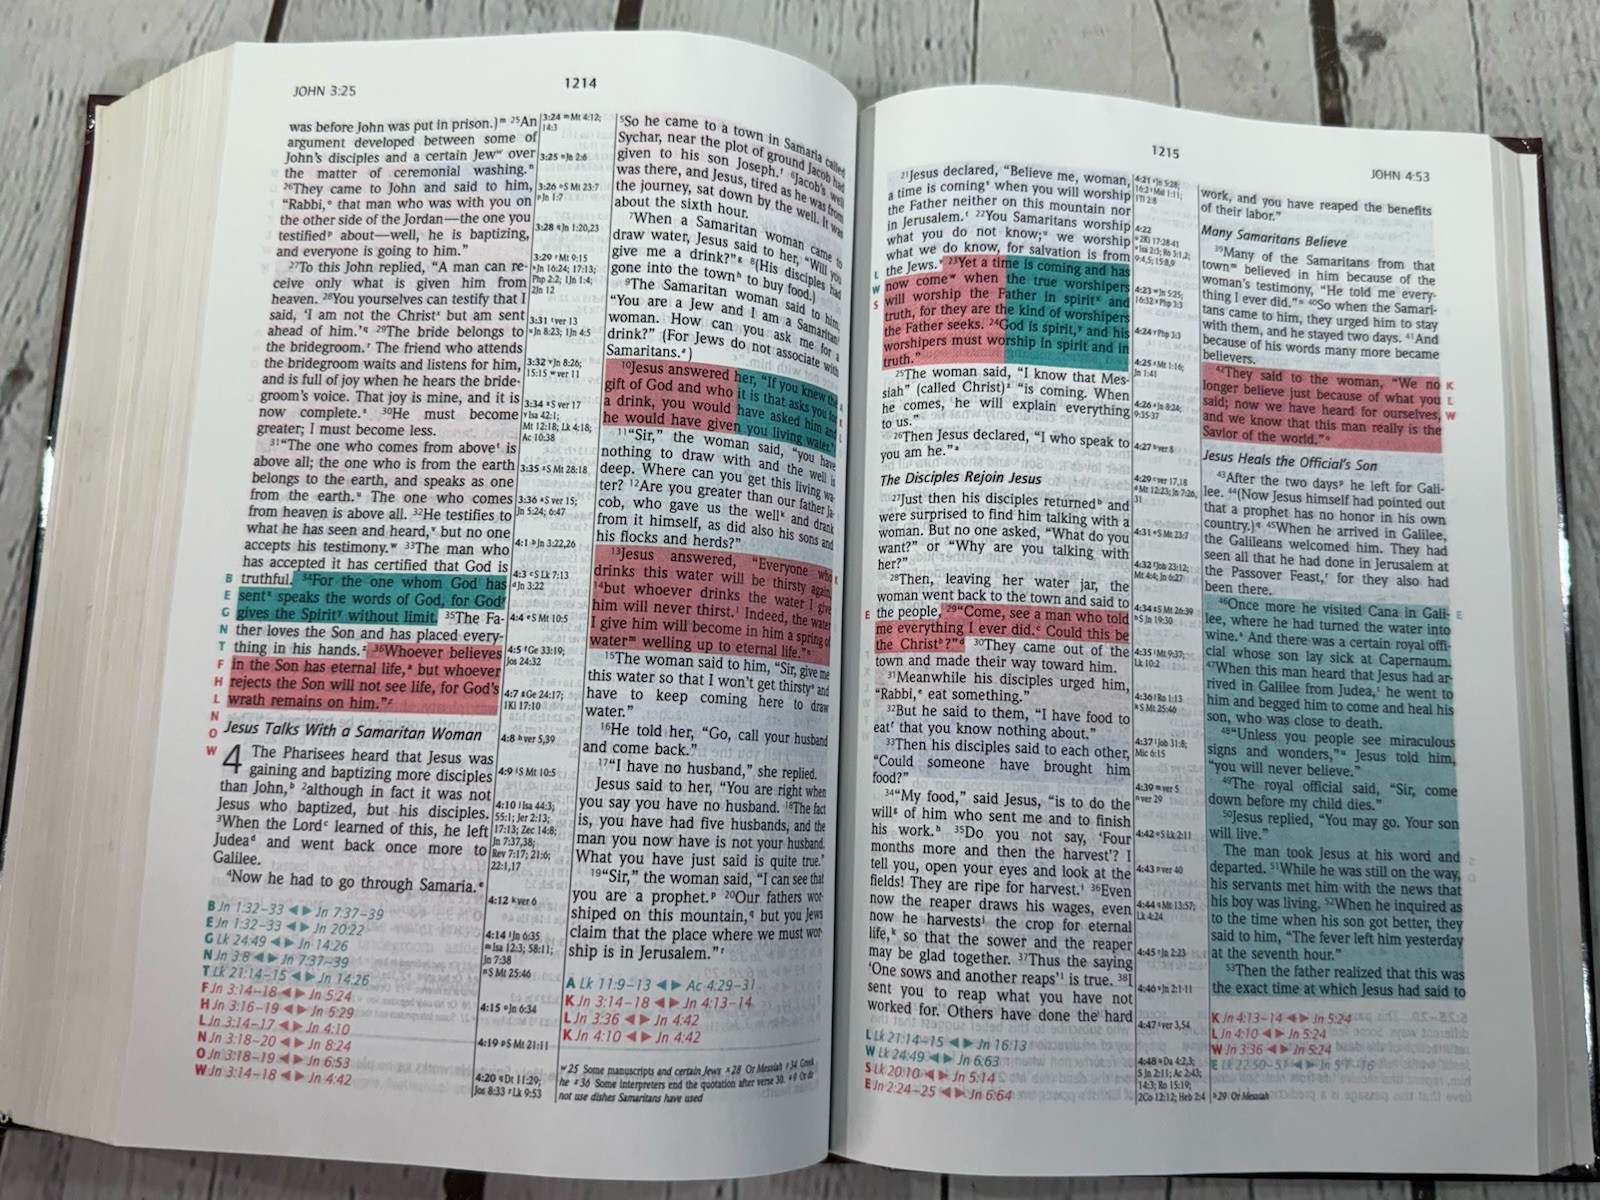 JOHN 3:25
1214
was before John was put in prison.)ᵐ ²⁵An
argument developed between some of
John's disciples and a certain Jewʷ over
the matter of ceremonial washing.ⁿ
²⁶They came to John and said to him,
“Rabbi,ᵒ that man who was with you on
the other side of the Jordan—the one you
testifiedᵖ about—well, he is baptizing,
and everyone is going to him.”
²⁷To this John replied, “A man can re-
ceive only what is given him from
heaven. ²⁸You yourselves can testify that I
said, ‘I am not the Christˣ but am sent
ahead of him.’ ²⁹The bride belongs to
the bridegroom.ʳ The friend who attends
the bridegroom waits and listens for him,
and is full of joy when he hears the bride-
groom's voice. That joy is mine, and it is
now complete.ˢ ³⁰He must become
greater; I must become less.
³¹“The one who comes from aboveᵗ is
above all; the one who is from the earth
belongs to the earth, and speaks as one
from the earth.ᵘ The one who comes
from heaven is above all. ³²He testifies to
what he has seen and heard,ᵛ but no one
accepts his testimony.ʷ ³³The man who
has accepted it has certified that God is
B truthful. ³⁴For the one whom God has
E sentˣ speaks the words of God, for Godʸ
G gives the Spiritʸ without limit. ³⁵The Fa-
N ther loves the Son and has placed every-
T thing in his hands.ᶻ ³⁶Whoever believes
F in the Son has eternal life,ᵃ but whoever
H rejects the Son will not see life, for God's
L wrath remains on him.”ᶻ
N
O
W
Jesus Talks With a Samaritan Woman
4 The Pharisees heard that Jesus was
gaining and baptizing more disciples
than John,ᵇ ²although in fact it was not
Jesus who baptized, but his disciples.
³When the Lordᶜ learned of this, he left
Judeaᵈ and went back once more to
Galilee.
⁴Now he had to go through Samaria.ᵉ
B Jn 1:32–33 ◀▶ Jn 7:37–39
E Jn 1:32–33 ◀▶ Jn 20:22
G Lk 24:49 ◀▶ Jn 14:26
N Jn 3:8 ◀▶ Jn 7:37–39
T Lk 21:14–15 ◀▶ Jn 14:26
F Jn 3:14–18 ◀▶ Jn 5:24
H Jn 3:16–19 ◀▶ Jn 5:29
L Jn 3:14–17 ◀▶ Jn 4:10
N Jn 3:18–20 ◀▶ Jn 8:24
O Jn 3:18–19 ◀▶ Jn 6:53
W Jn 3:14–18 ◀▶ Jn 4:42
3:24 ᵐMt 4:12;
14:3
3:25 ⁿJn 2:6
3:26 ᵒS Mt 23:7
ᵖJn 1:7
3:28 Jn 1:20,23
3:29 ʳMt 9:15
ˢJn 16:24; 17:13;
Php 2:2; 1Jn 1:4;
2Jn 12
3:31 ᵗver 13
ᵘJn 8:23; 1Jn 4:5
3:32 ᵛJn 8:26;
15:15 ʷver 11
3:34 ˣS ver 17
ʸIsa 42:1;
Mt 12:18; Lk 4:18;
Ac 10:38
3:35 ᶻS Mt 28:18
3:36 ᵃS ver 15;
Jn 5:24; 6:47
4:1 ᵇJn 3:22,26
4:3 ᶜS Lk 7:13
ᵈJn 3:22
4:4 ᵉS Mt 10:5
4:5 ᶠGe 33:19;
Jos 24:32
4:7 ᵍGe 24:17;
1Ki 17:10
4:8 ʰver 5,39
4:9 ⁱS Mt 10:5
4:10 ʲIsa 44:3;
55:1; Jer 2:13;
17:13; Zec 14:8;
Jn 7:37,38;
Rev 7:17; 21:6;
22:1,17
4:12 ᵏver 6
4:14 ˡJn 6:35
ᵐIsa 12:3; 58:11;
Jn 7:38
ⁿS Mt 25:46
4:15 ᵒJn 6:34
4:19 ᵖS Mt 21:11
4:20 Dt 11:29;
Jos 8:33 ʳLk 9:53
⁵So he came to a town in Samaria called
Sychar, near the plot of ground Jacob had
given to his son Joseph.ᶠ ⁶Jacob's well
was there, and Jesus, tired as he was from
the journey, sat down by the well. It was
about the sixth hour.
⁷When a Samaritan woman came to
draw water, Jesus said to her, “Will you
give me a drink?”ᵍ ⁸(His disciples had
gone into the townʰ to buy food.)
⁹The Samaritan woman said to him,
“You are a Jew and I am a Samaritanⁱ
woman. How can you ask me for a
drink?” (For Jews do not associate with
Samaritans.ᵃ)
¹⁰Jesus answered her, “If you knew the
gift of God and who it is that asks you for
a drink, you would have asked him and
he would have given you living water.”ʲ
¹¹“Sir,” the woman said, “you have
nothing to draw with and the well is
deep. Where can you get this living wa-
ter? ¹²Are you greater than our father Ja-
cob, who gave us the wellᵏ and drank
from it himself, as did also his sons and
his flocks and herds?”
¹³Jesus answered, “Everyone who
drinks this water will be thirsty again,
¹⁴but whoever drinks the water I give
him will never thirst.ˡ Indeed, the water
I give him will become in him a spring of
waterᵐ welling up to eternal life.”ⁿ
¹⁵The woman said to him, “Sir, give me
this water so that I won't get thirstyᵒ and
have to keep coming here to draw
water.”
¹⁶He told her, “Go, call your husband
and come back.”
¹⁷“I have no husband,” she replied.
Jesus said to her, “You are right when
you say you have no husband. ¹⁸The fact
is, you have had five husbands, and the
man you now have is not your husband.
What you have just said is quite true.”
¹⁹“Sir,” the woman said, “I can see that
you are a prophet.ᵖ ²⁰Our fathers wor-
shiped on this mountain, but you Jews
claim that the place where we must wor-
ship is in Jerusalem.”ʳ
A Lk 11:9–13 ◀▶ Ac 4:29–31
K Jn 3:14–18 ◀▶ Jn 4:13–14
L Jn 3:36 ◀▶ Jn 4:42
K Jn 4:10 ◀▶ Jn 4:42
ʷ25 Some manuscripts and certain Jews ˣ28 Or Messiah ʸ34 Greek
he ᶻ36 Some interpreters end the quotation after verse 30. ᵃ9 Or do
not use dishes Samaritans have used
1215
JOHN 4:53
²¹Jesus declared, “Believe me, woman,
a time is comingˢ when you will worship
the Father neither on this mountain nor
in Jerusalem.ᵗ ²²You Samaritans worship
what you do not know;ᵘ we worship
what we do know, for salvation is from
L the Jews.ᵛ ²³Yet a time is coming and has
W now comeʷ when the true worshipers
S will worship the Father in spiritˣ and
truth, for they are the kind of worshipers
the Father seeks. ²⁴God is spirit,ʸ and his
worshipers must worship in spirit and in
truth.”
²⁵The woman said, “I know that Mes-
siah” (called Christ)ᶻ “is coming. When
he comes, he will explain everything
to us.”
²⁶Then Jesus declared, “I who speak to
you am he.”ᵃ
The Disciples Rejoin Jesus
²⁷Just then his disciples returnedᵇ and
were surprised to find him talking with a
woman. But no one asked, “What do you
want?” or “Why are you talking with
her?”
²⁸Then, leaving her water jar, the
woman went back to the town and said to
E the people, ²⁹“Come, see a man who told
me everything I ever did.ᶜ Could this be
the Christᵇ?”ᵈ ³⁰They came out of the
town and made their way toward him.
³¹Meanwhile his disciples urged him,
“Rabbi,ᵉ eat something.”
³²But he said to them, “I have food to
eatᶠ that you know nothing about.”
³³Then his disciples said to each other,
“Could someone have brought him
food?”
³⁴“My food,” said Jesus, “is to do the
willᵍ of him who sent me and to finish
his work.ʰ ³⁵Do you not say, ‘Four
months more and then the harvest’? I
tell you, open your eyes and look at the
fields! They are ripe for harvest.ⁱ ³⁶Even
now the reaper draws his wages, even
now he harvestsʲ the crop for eternal
life,ᵏ so that the sower and the reaper
may be glad together. ³⁷Thus the saying
‘One sows and another reaps’ˡ is true. ³⁸I
sent you to reap what you have not
worked for. Others have done the hard
L Lk 21:14–15 ◀▶ Jn 16:13
W Lk 24:49 ◀▶ Jn 6:63
S Lk 20:10 ◀▶ Jn 5:14
E Jn 2:24–25 ◀▶ Jn 6:64
4:21 ˢJn 5:28;
16:2 ᵗMal 1:11;
1Ti 2:8
4:22
ᵘ2Ki 17:28-41
ᵛIsa 2:3; Ro 3:1,2;
9:4,5; 15:8,9
4:23 ʷJn 5:25;
16:32 ˣPhp 3:3
4:24 ʸPhp 3:3
4:25 ᶻMt 1:16;
Jn 1:41
4:26 ᵃJn 8:24;
9:35-37
4:27 ᵇver 8
4:29 ᶜver 17,18
ᵈMt 12:23; Jn 7:26,
31
4:31 ᵉS Mt 23:7
4:32 ᶠJob 23:12;
Mt 4:4; Jn 6:27
4:34 ᵍS Mt 26:39
ʰS Jn 19:30
4:35 ⁱMt 9:37;
Lk 10:2
4:36 ʲRo 1:13
ᵏS Mt 25:46
4:37 ˡJob 31:8;
Mic 6:15
4:39 ᵐver 5
ⁿver 29
4:42 ᵒS Lk 2:11
4:43 ᵖver 40
4:44 Mt 13:57;
Lk 4:24
4:45 ʳJn 2:23
4:46 ˢJn 2:1-11
4:47 ᵗver 3,54
4:48 ᵘDa 4:2,3;
S Jn 2:11; Ac 2:43;
14:3; Ro 15:19;
2Co 12:12; Heb 2:4
work, and you have reaped the benefits
of their labor.”
Many Samaritans Believe
³⁹Many of the Samaritans from that
townᵐ believed in him because of the
woman's testimony, “He told me every-
thing I ever did.”ⁿ ⁴⁰So when the Samari-
tans came to him, they urged him to stay
with them, and he stayed two days. ⁴¹And
because of his words many more became
believers.
⁴²They said to the woman, “We no K
longer believe just because of what you L
said; now we have heard for ourselves, W
and we know that this man really is the
Savior of the world.”ᵒ
Jesus Heals the Official's Son
⁴³After the two daysᵖ he left for Gali-
lee. ⁴⁴(Now Jesus himself had pointed out
that a prophet has no honor in his own
country.) ⁴⁵When he arrived in Galilee,
the Galileans welcomed him. They had
seen all that he had done in Jerusalem at
the Passover Feast,ʳ for they also had
been there.
⁴⁶Once more he visited Cana in Gali- E
lee, where he had turned the water into
wine.ˢ And there was a certain royal offi-
cial whose son lay sick at Capernaum.
⁴⁷When this man heard that Jesus had ar-
rived in Galilee from Judea,ᵗ he went to
him and begged him to come and heal his
son, who was close to death.
⁴⁸“Unless you people see miraculous
signs and wonders,”ᵘ Jesus told him,
“you will never believe.”
⁴⁹The royal official said, “Sir, come
down before my child dies.”
⁵⁰Jesus replied, “You may go. Your son
will live.”
The man took Jesus at his word and
departed. ⁵¹While he was still on the way,
his servants met him with the news that
his boy was living. ⁵²When he inquired as
to the time when his son got better, they
said to him, “The fever left him yesterday
at the seventh hour.”
⁵³Then the father realized that this was
the exact time at which Jesus had said to
K Jn 4:13–14 ◀▶ Jn 5:24
L Jn 4:10 ◀▶ Jn 5:24
W Jn 3:36 ◀▶ Jn 5:24
E Lk 22:50–51 ◀▶ Jn 5:7–16
ᵇ29 Or Messiah